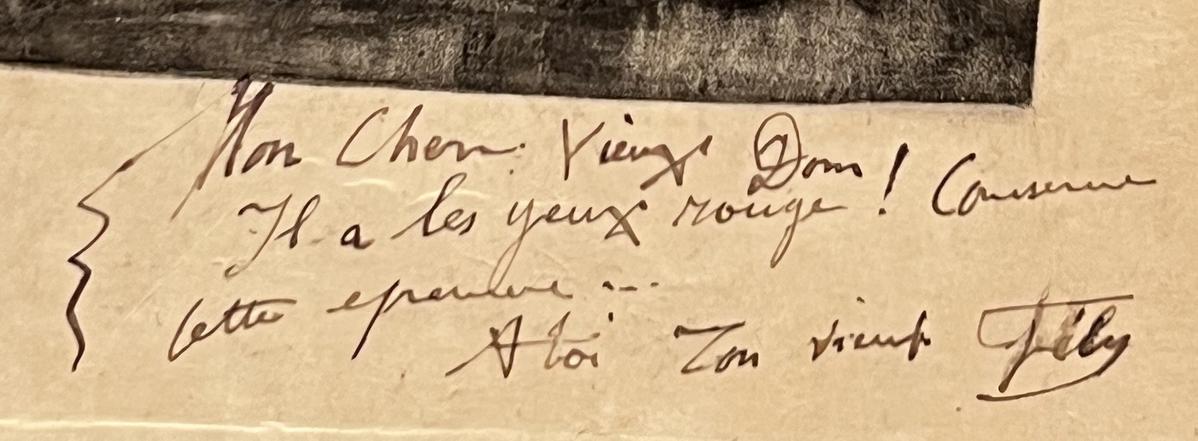 Mon Cher Vieux Dom !
Il a les yeux rouge ! Conserve
cette epreuve ...
A toi Ton vieux